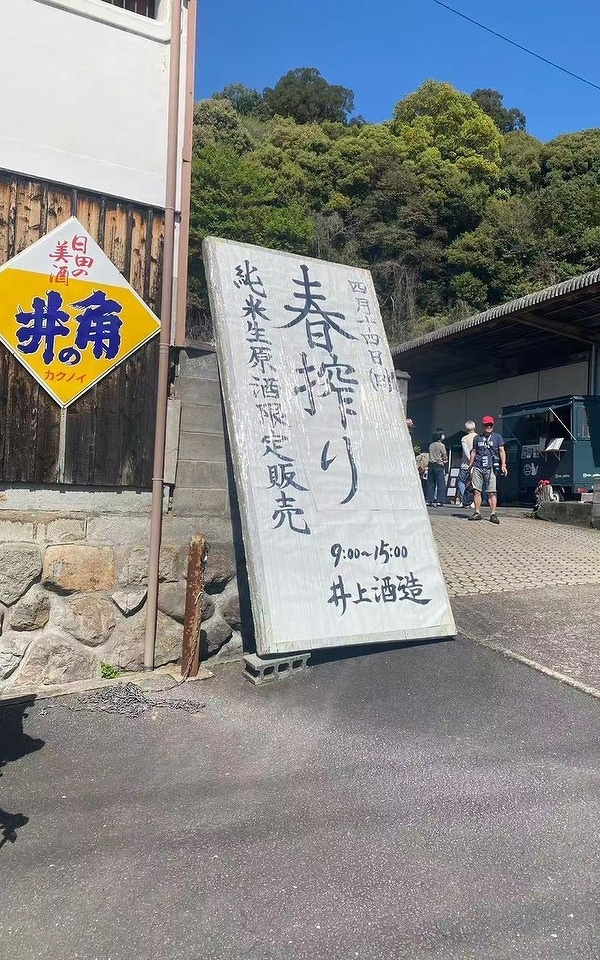 四月十四日(日)
春搾り
純米生原酒限定販売
9:00~15:00
井上酒造
日田の
美酒
角の井
カクノイ